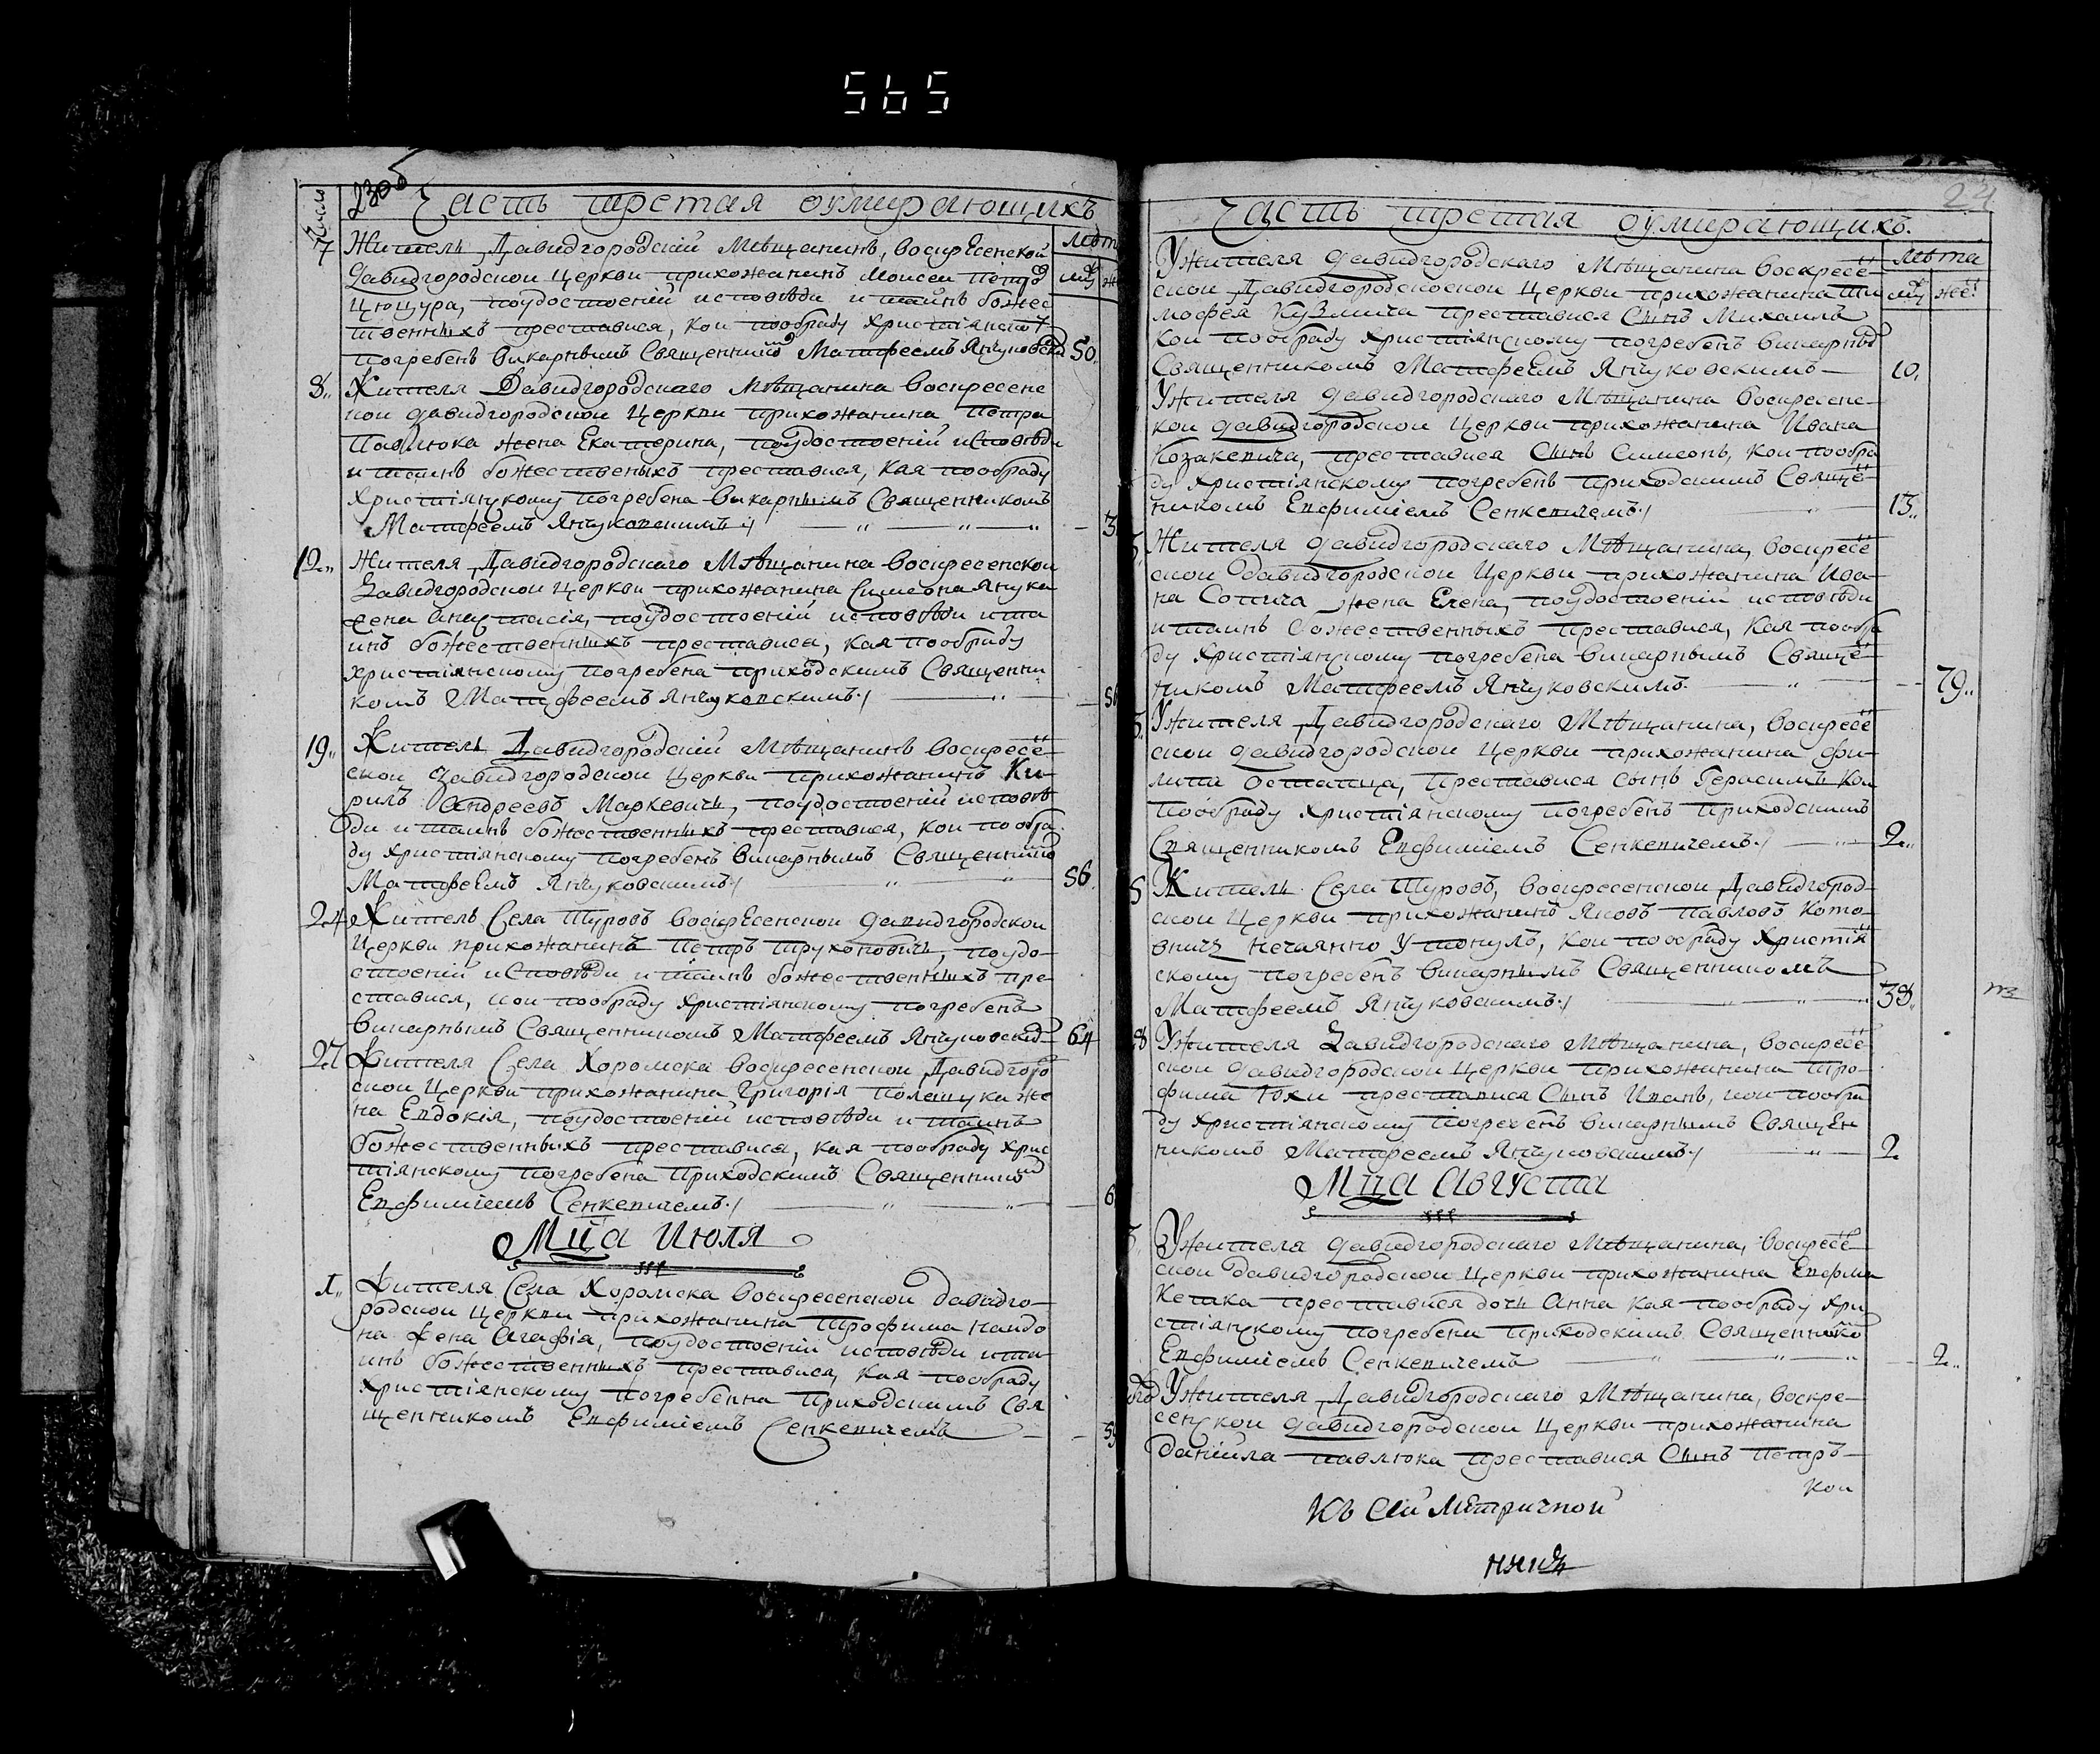 565
230об
Часть третая оумирающихъ
Числа
Лѣт
7 Житель Давидгородскій Мѣщанинъ, воскресенской
Давидгородской Церкви прихожанинъ Моисей Петро
Цюцура, поудостоеній исповѣди и таинъ божес
твенныхъ преставися, кои пообряду христіянско
погребенъ викарнымъ Священнико Матфеемъ Янчуковски 50.
8. Жителя Давидгородскаго Мѣщанина воскресенс
кои Давидгородскои Церкви прихожанина Петра
Павлюка жена Екатерина, поудостоеній исповѣди
и таинъ божественыхъ преставися, кая пообряду
Христіянскому погребена викарнымъ Священникомъ
Матфеемъ Янчуковскимъ 3
12. Жителя Давидгородскаго Мѣщанина воскресенскои
Давидгородскои Церкви прихожанина Симеона Янука
жена Анастасія, поудостоеній исповѣди и та
инъ божественныхъ преставися, кая пообряду
христіянскому погребена приходскимъ Священни
комъ Матфеемъ Янчуковскимъ 56
19. Житель Давидгородскій Мѣщанинъ воскресе
скои Давидгородскои Церкви прихожанинъ Ки-
рилъ Андреевъ Маркевичь, поудостоеній исповѣ
ди и таинъ божественныхъ преставися, кои пообря
ду христіянскому погребенъ викарнымъ Священнико
Матфеемъ Янчуковскимъ 56.
24 Житель Села Туровъ воскресенскои Давидгородскои
Церкви прихожанинъ Петръ Трухоновичь, поудо-
стоеній исповѣди и таинъ божественныхъ пре-
ставися, кои пообряду христіянскому погребенъ
викарнымъ Священникомъ Матфеемъ Янчуковски 64
27 Жителя Села Хоромска воскресенскои Давидгоро
скои Церкви прихожанина Григорія Полешука же
на Евдокія, поудостоеній исповѣди и таинъ
божественныхъ преставися, кая пообряду хрис
тіянскому погребена приходскимъ Священнико
Евфиміемъ Сенкевичемъ 6
Мца Июля
1. Жителя Села Хоромска воскресенскои Давидго-
родскои Церкви прихожанина Трофима Наидо
на жена Агафія, поудостоеній исповѣди и та-
инъ божественныхъ преставися, кая пообряду
Христіянскому погребенна приходскимъ Свя
щенникомъ Евфиміемъ Сенкевичемъ 55
24
Часть третая оумирающихъ.
Лѣта
му же
Ужителя Давидгородскаго Мѣщанина воскресе-
скои Давидгородскоскои Церкви прихожанина Ти
мофея Кузмича преставися Сынъ Михаилъ
кои пообряду христіянскому погребенъ викарны
Священникомъ Матфеемъ Янчуковскимъ 10.
Ужителя Давидгородскаго Мѣщанина воскресенс-
кои Давидгородскои Церкви прихожанина Ивана
Козакевича, преставися Сынъ Симеонъ, кои пообря
ду христіянскому погребенъ приходскимъ Свяще-
никомъ Евфиміемъ Сенкевичемъ 13.
Жителя Давидгородскаго Мѣщанина, воскресе
скои Давидгородскои Церкви прихожанина Ива-
на Сопича жена Елена, поудостоеній исповѣди
и таинъ божественныхъ преставися, кая пообря
ду христіянскому погребена викарнымъ Свяще-
никомъ Матфеемъ Янчуковскимъ 79.
Ужителя Давидгородскаго Мѣщанина, воскресе
скои Давидгородскои Церкви прихожанина Фи-
липа Остапца, преставися сынъ Герасимъ кои
пообряду христіянскому погребенъ приходскимъ
Священникомъ Евфиміемъ Сенкевичемъ 2.
5 Житель Села Туровъ, воскресенскои Давидгород-
скои Церкви прихожанинъ Яковъ Павловъ Кото-
вичъ нечаянно утонулъ, кои пообряду христія
скому погребенъ викарнымъ Священникомъ
Матфеемъ Янчуковскимъ 38.
8 Ужителя Давидгородскаго Мѣщанина, воскресе
скои Давидгородскои Церкви прихожанина Тро-
фима Юхи преставися Сынъ Иванъ, кои пообря
ду христіянскому погребенъ викарнымъ Священ
никомъ Матфеемъ Янчуковскимъ 2
Мца Августа
Ужителя Давидгородскаго Мѣщанина, воскресе-
скои Давидгородскои Церкви прихожанина Евфима
преставися дочь Анна кая пообряду хри
стіянскому погребени приходскимъ Священнико
Евфиміемъ Сенкевичемъ 2.
Ужителя Давидгородскаго Мѣщанина, воскре-
сенскои Давидгородскои Церкви прихожанина
Даніила Павлюка преставися Сынъ Петръ
кои
Къ Сей Метричной